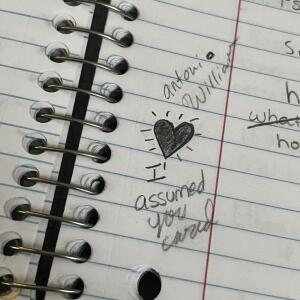 antonio
William
I
assumed
you
cared
s
h
what
ho